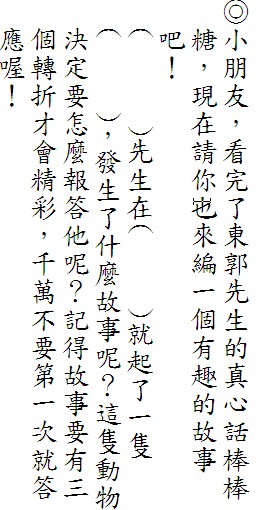 ◎小朋友，看完了東郭先生的真心話棒棒
糖，現在請你也來編一個有趣的故事
吧！
（　　　）先生在（　　　）就起了一隻
（　　　），發生了什麼故事呢？這隻動物
決定要怎麼報答他呢？記得故事要有三
個轉折才會精彩，千萬不要第一次就答
應喔！